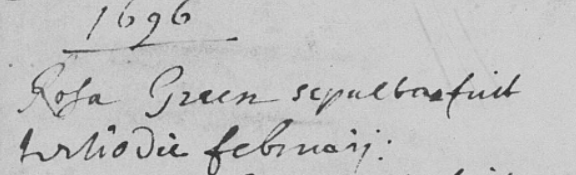 1696
Rosa Green sepulta fuit
tertio die februarij: